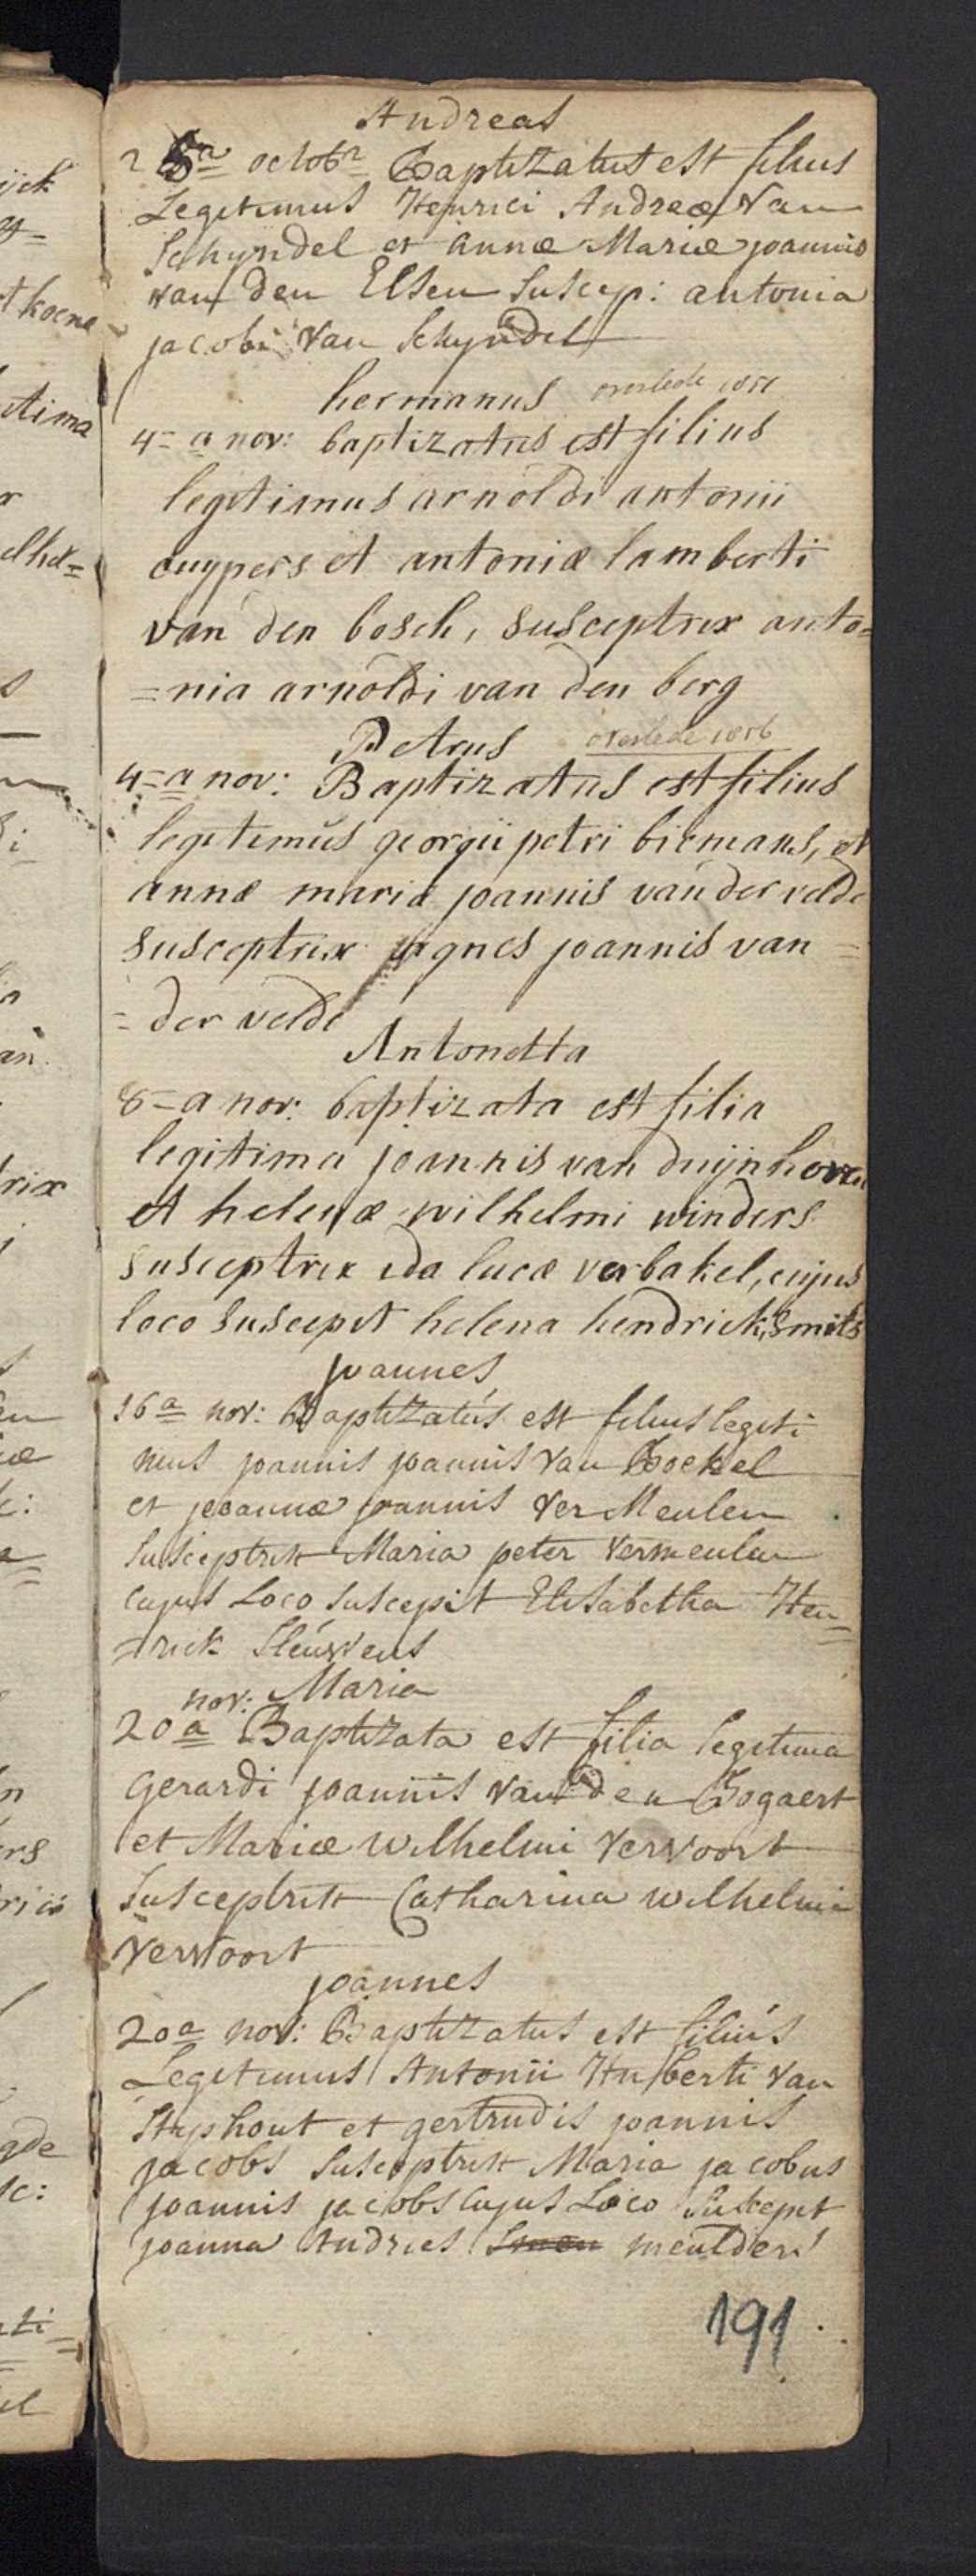 Andreas
28a octobr Baptizatus est filius
Legitimus Henrici Andreæ Van
Schyndel et annæ Mariæ joannis
van den Elsen Suscep: antonia
jacobi Van Schyndel
hermanus overlede
4=a nov: baptizatus est filius
legitimus arnoldi antonii
cuypers et antoniæ lamberti
van den bosch, susceptrix anto=
=nia arnoldi van den berg
Petrus overlede
4=a nov: Baptizatus est filius
legitimus georgii petri biemans, et
annæ mariæ joannis van der velde
susceptrix agnes joannis van
=der velde
Antonetta
8=a nov: baptizata est filia
legitima joannis van duijnhoven
et helenæ wilhelmi winders
susceptrix ida lucæ verbakel, cujus
loco suscepit helena hendrick smits
joannes
16a nov: Baptizatus est filius legiti
mus joannis joannis Van Boekel
et joannæ joannis Ver Meulen
Susceptrix Maria peter Vermeulen
cujus Loco Suscepit Elisabetha Hen=
=rick Sleuwens
nov: Maria
20a Baptizata est filia legitima
Gerardi joannis Van den Bogaert
et Mariæ Wilhelmi Vervoort
Susceptrix Catharina Wilhelmi
Vervoort
joannes
20a nov: Baptizatus est filius
Legitimus Antonii Huberti Van
Stiphout et gertrudis joannis
jacobs Susceptrix Maria jacobus
joannis jacobs Cujus Loco Suscepit
joanna Andries meulders
191